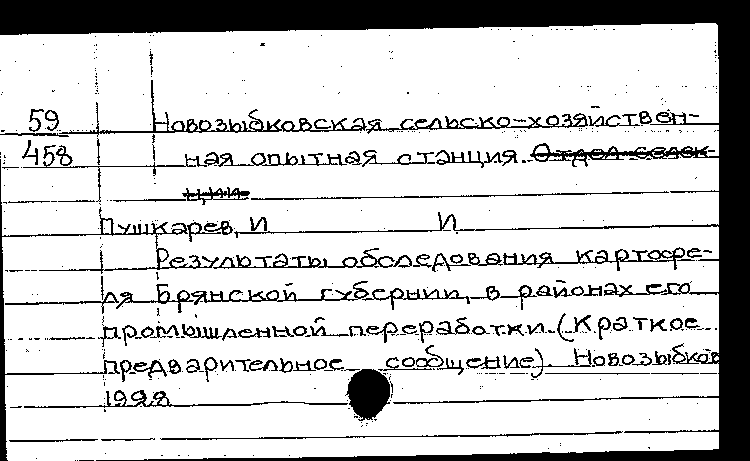 59 Новозыбковская сельско-хозяйствен-
458 ная опытная станция. Отдел селек-
ции
Пушкарев, И И
Результаты обследования картофе-
ля Брянской губернии, в районах его
промышленной переработки. (Краткое
предварительное сообщение). Новозыбков
1928